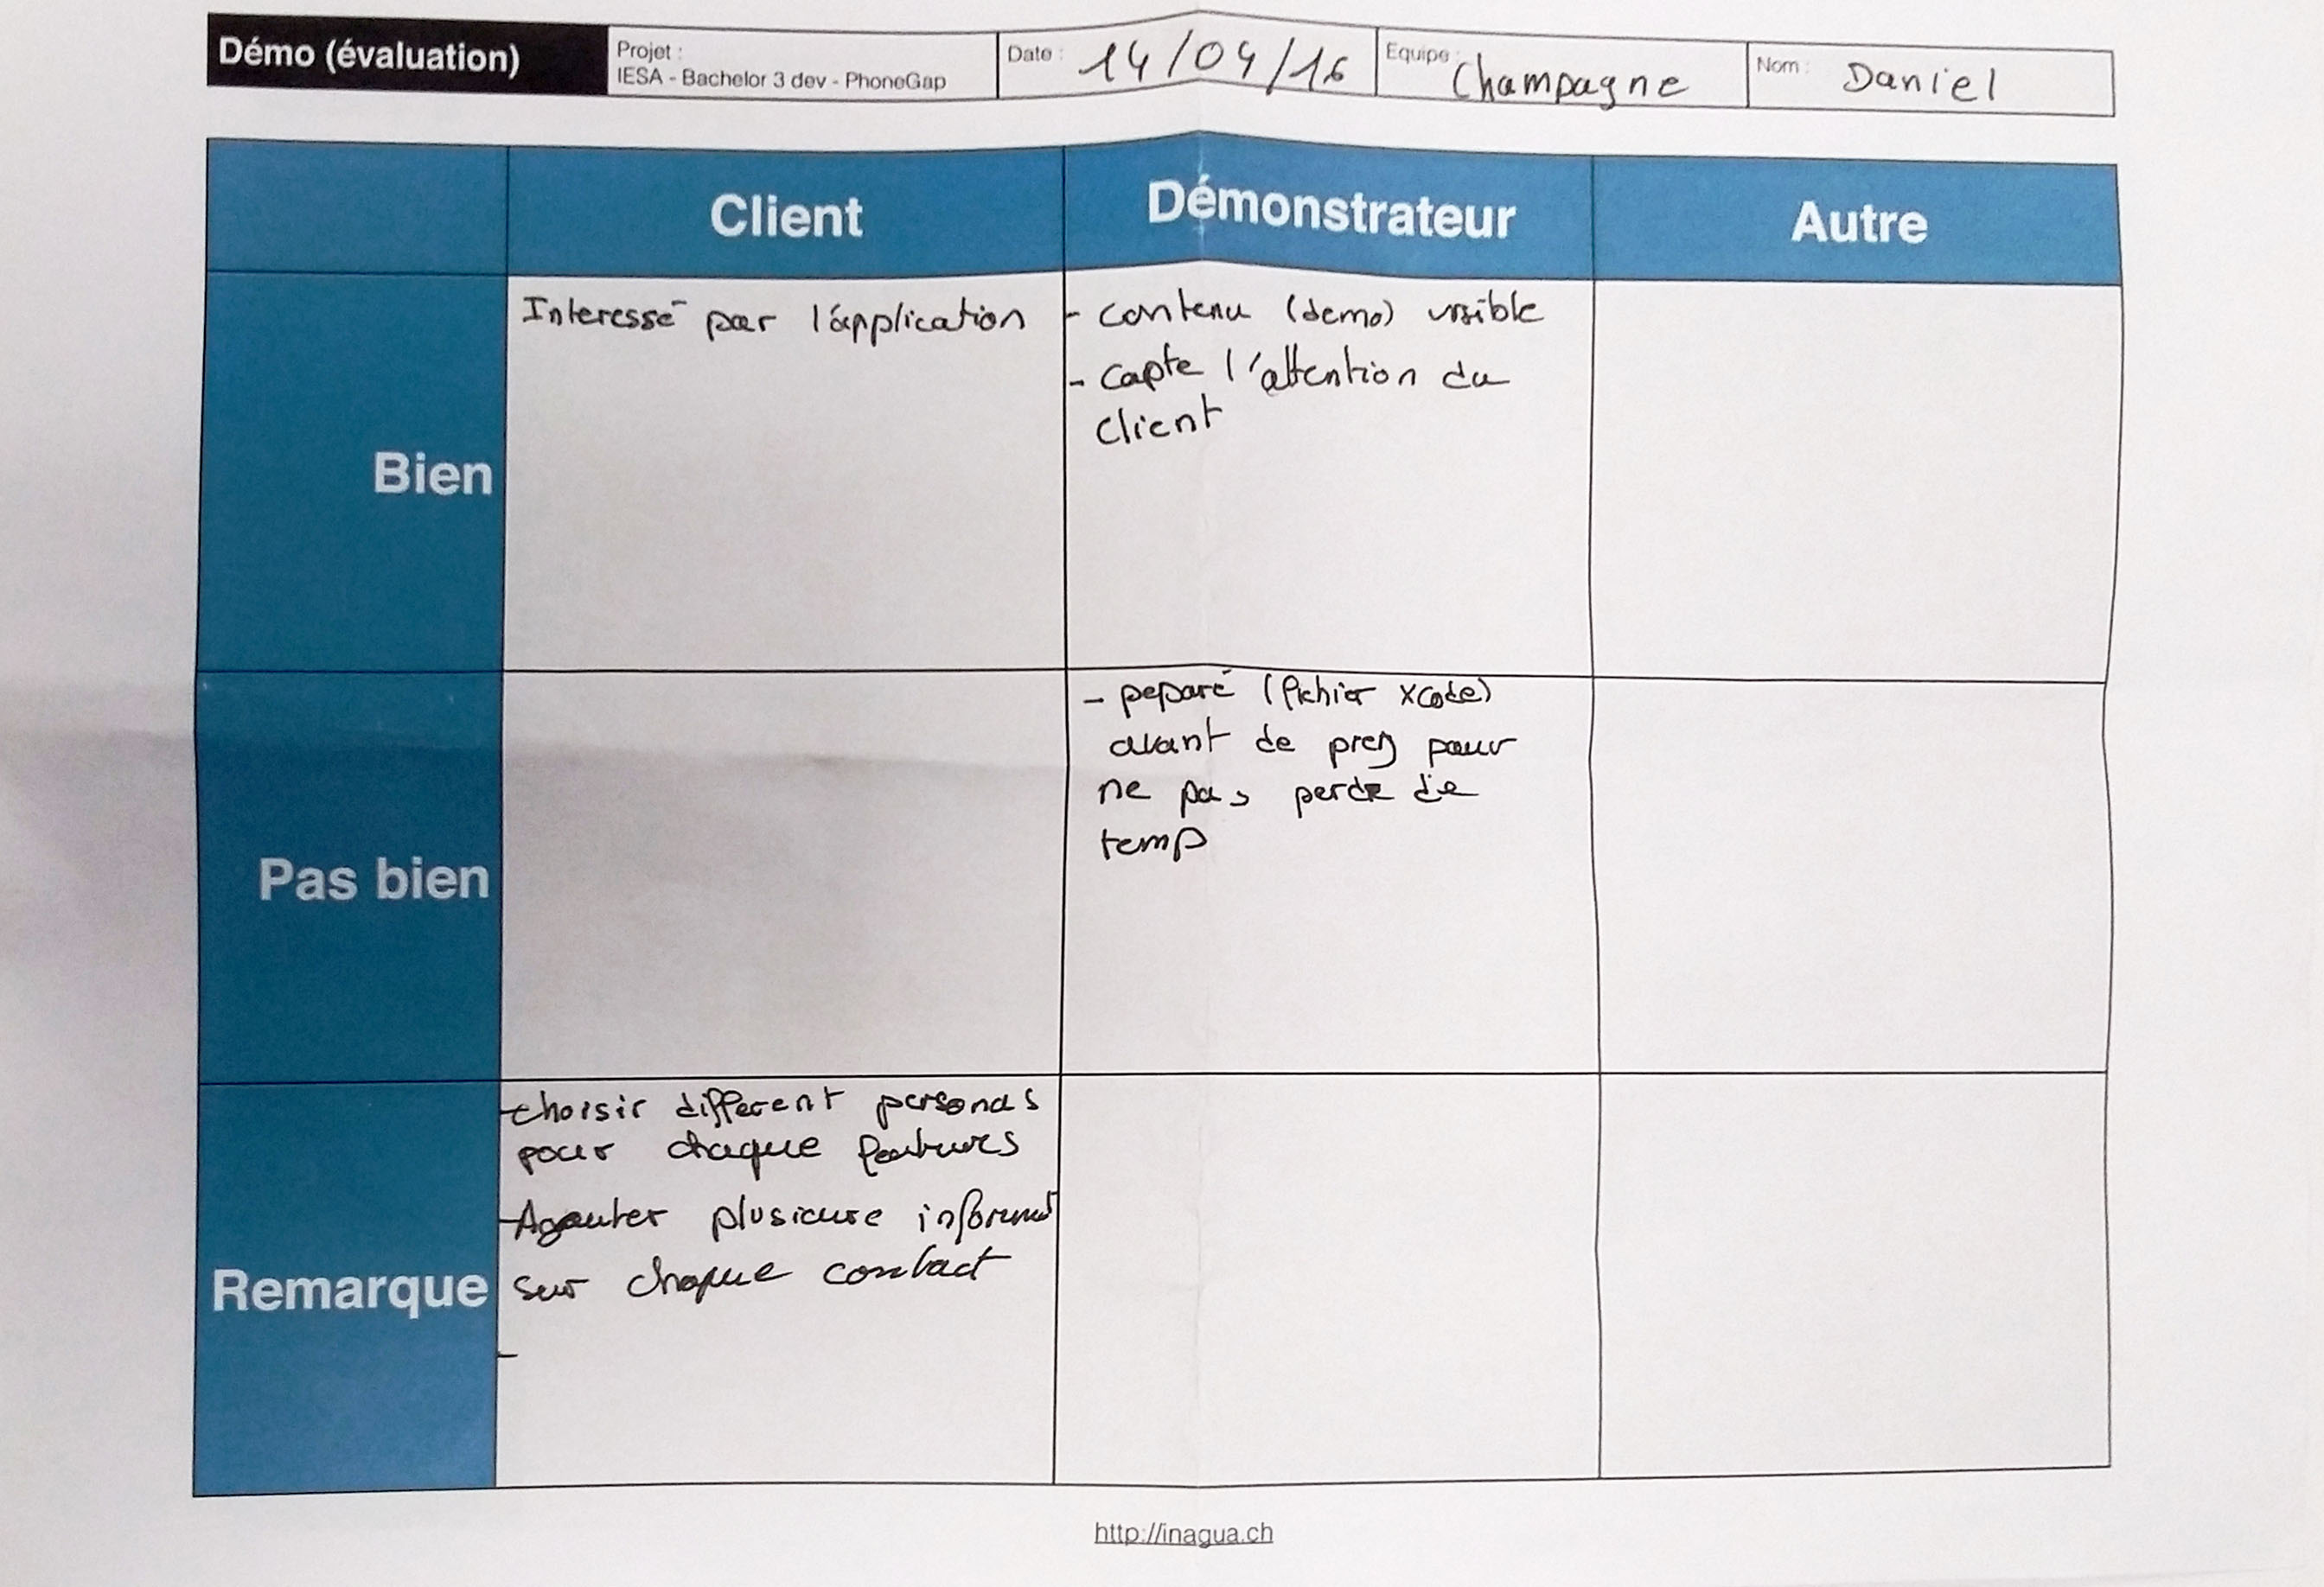 Démo (évaluation)
Projet :
IESA - Bachelor 3 dev - PhoneGap
Date : 14/04/16
Equipe : Champagne
Nom : Daniel
Client
Démonstrateur
Autre
Bien
Interessé par l'application
- contenu (demo) visible
- capte l'attention du
client
Pas bien
- peparé (fichier xcode)
avant de prez pour
ne pas perdre de
temp
Remarque
- choisir different personas
pour chaque features
- Ajouter plusieure
sur chaque contact
-
http://inagua.ch